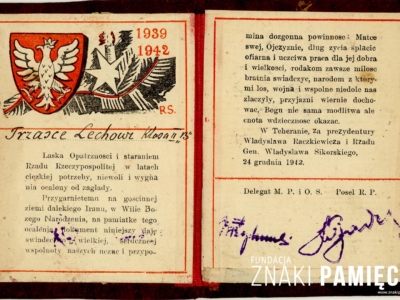 1939
1942
RS.
Trzasce Lechowi Klasa II "B"
Laska Opatrznosci i staraniem
Rzadu Rzeczypospolitej w latach
ciezkiej potrzeby, niewoli i wygna
nia ocalony od zaglady.
Przygarnietemu na goscinnej
ziemi dalekiego Iranu, w Wilie Bo
zego Narodzenia, na pamiatke tego
ocalenia dokument niniejszy daje
swiadectwo wielkiej, serdecznej
wspolnoty naszych uczuc i przypo-
mina dozgonna powinnosc: Matce
swej, Ojczyznie, dlug zycia splacic
ofiarna i uczciwa praca dla jej dobra
i wielkosci, rodakom zawsze milosc
bratnia swiadczyc, narodom z ktory-
mi los, wojna i wspolne niedole nas
zlaczyly, przyjazni wiernie docho-
wac, Bogu nie sama modlitwa ale
cnota wdziecznosc okazac.
W Teheranie, Za prezydentury
Wladyslawa Raczkiewicza i Rzadu
Gen. Wladyslawa Sikorskiego,
24 grudnia 1942.
Delegat M. P. i O. S. Posel R. P.
FUNDACJA
ZNAKI PAMIĘC